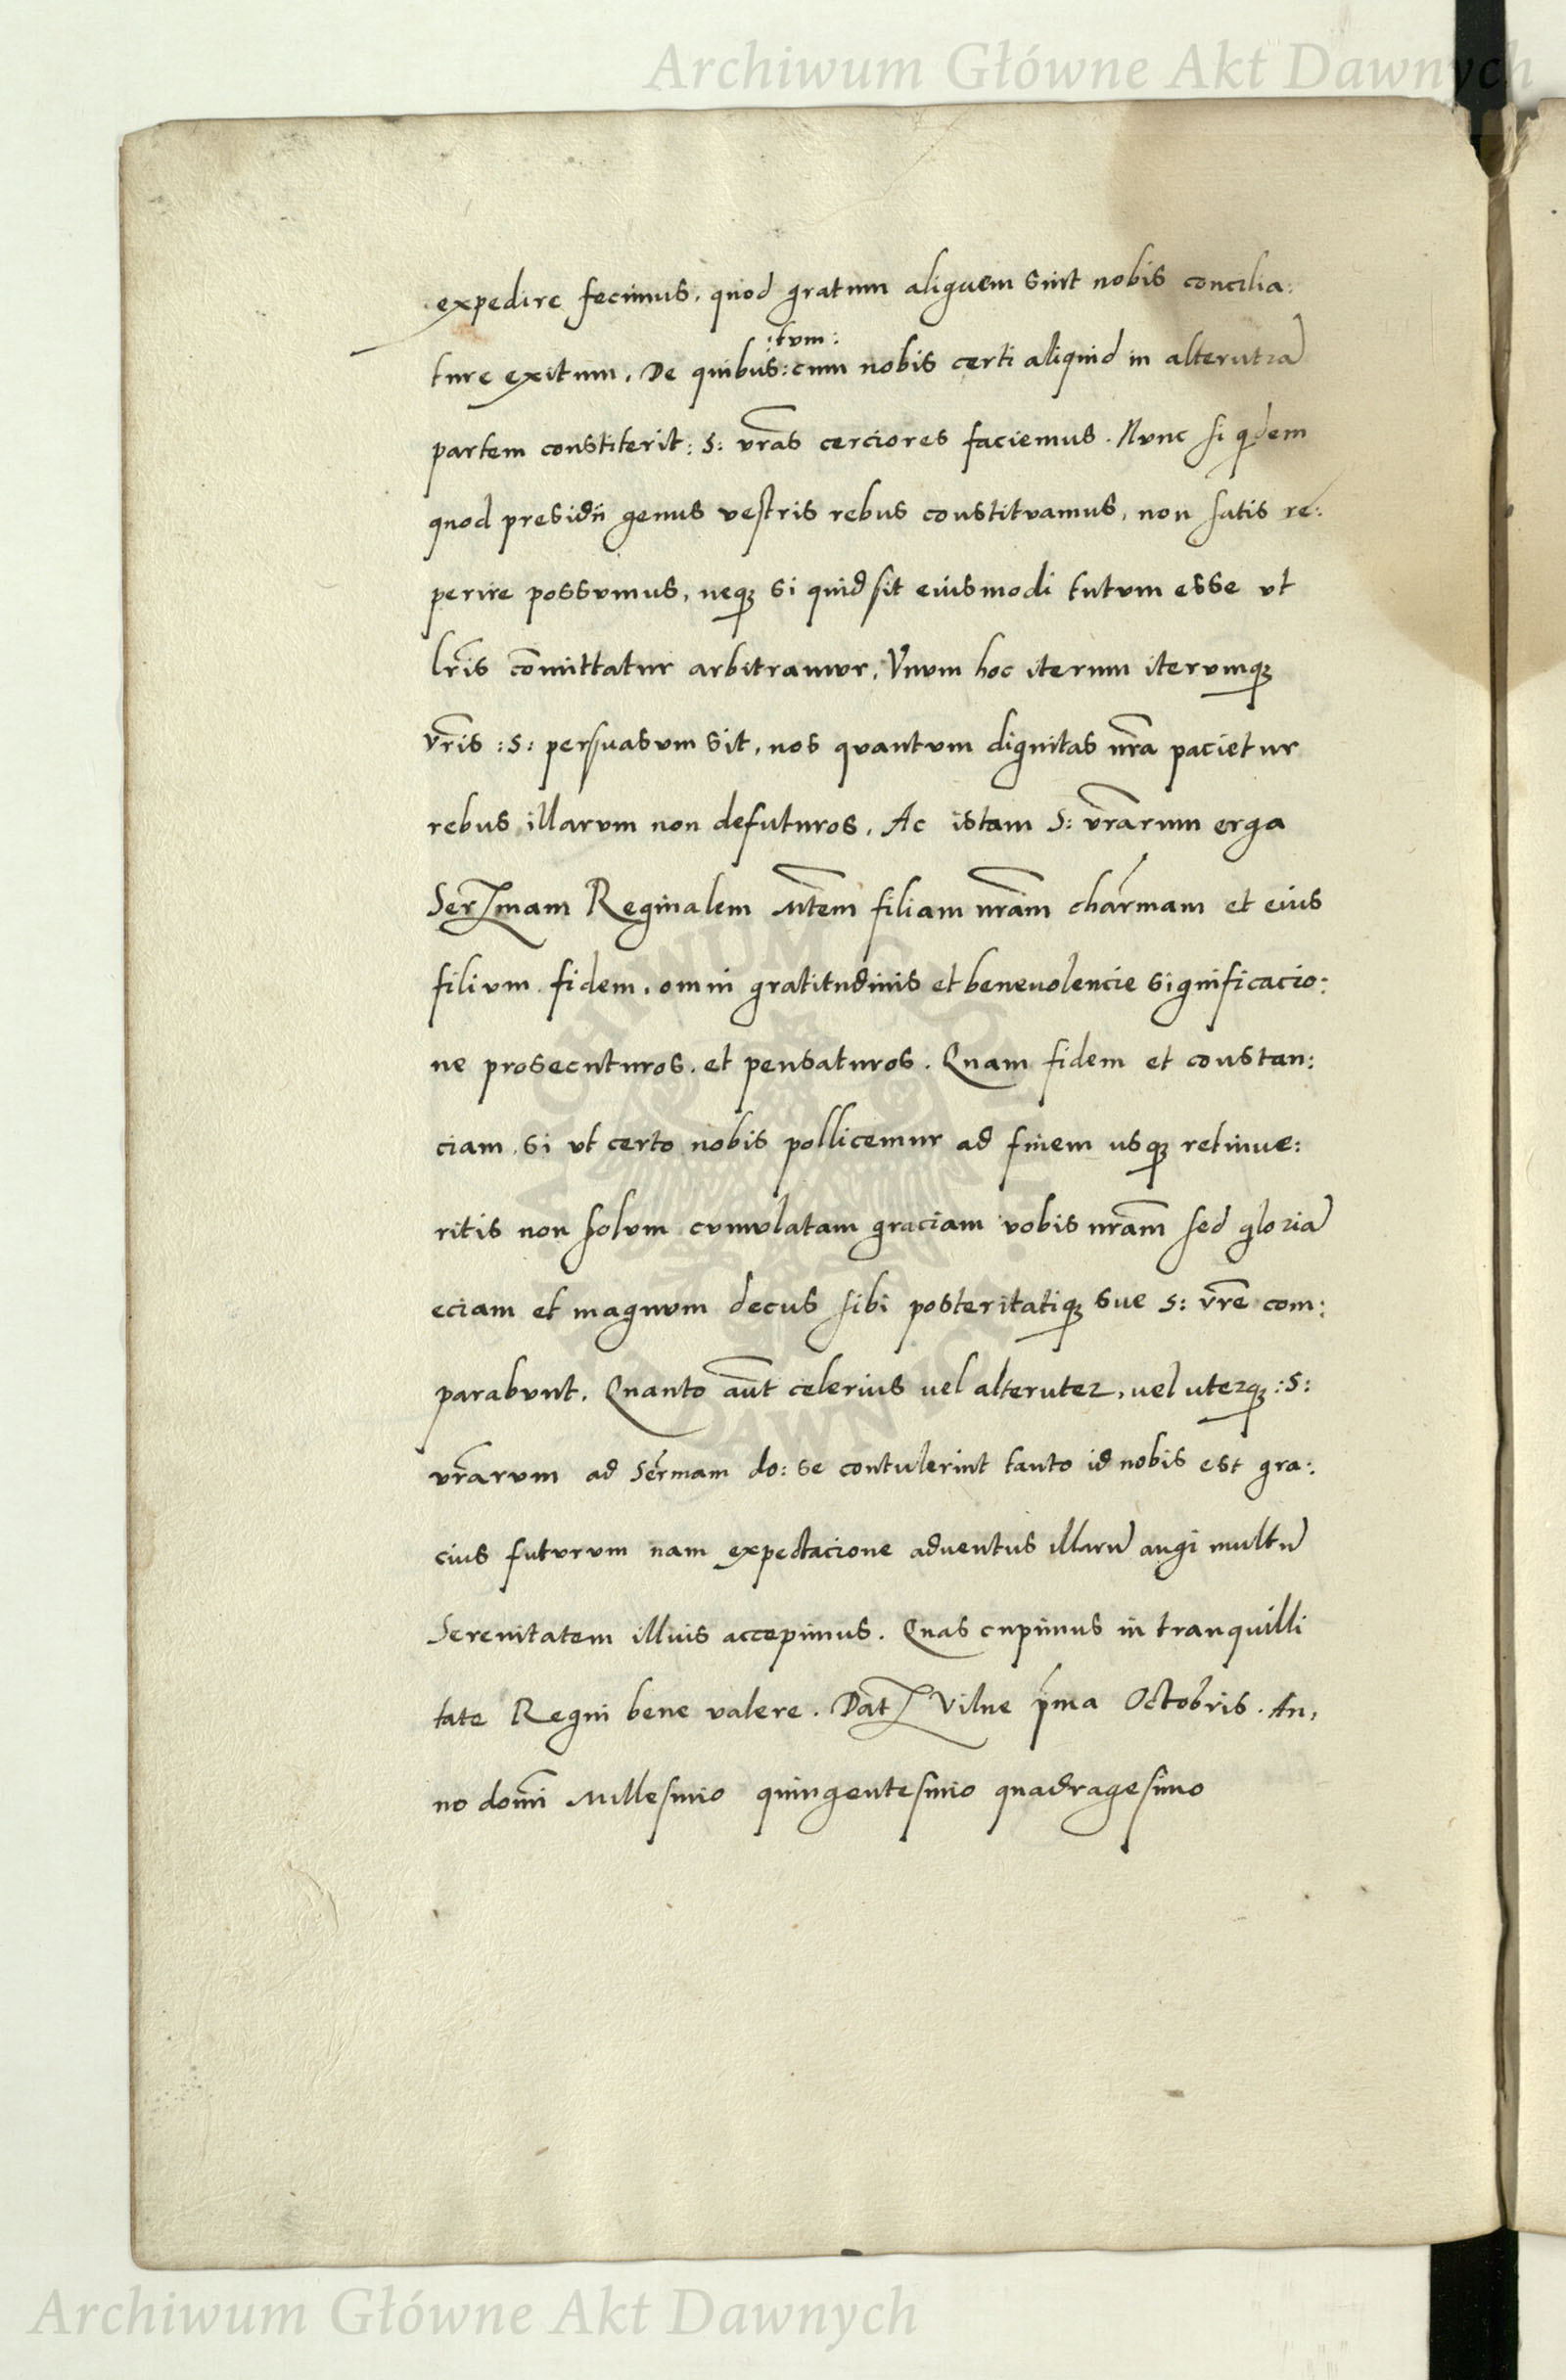 Archiwum Główne Akt Dawnych
expedire fecimus, quod gratum aliquem sint nobis concilia:
:tum:
ture exitum. De quibus: cum nobis certi aliquid in alterutrã
partem constiterit: S: vr̃as cerciores faciemus. Nunc si qdem
quod presidii genus vestris rebus constituamus, non satis re:
perire possumus, neq3 si quid sit eiusmodi tutum esse ut
lr̃is com̃ittatur arbitramur. Vnum hoc iterum iterumq3
vr̃is :S: persuasum sit, nos quantum dignitas nr̃a pacietur
rebus illarum non defuturos. Ac istam S: vr̃arum erga
Serꝫmam Reginalem Mt̃em filiam nr̃am char̃mam et eius
filium fidem, omni gratitudinis et beneuolencie significacio:
ne prosecuturos, et pensaturos. Quam fidem et constan:
ciam, si ut certo nobis pollicemur ad finem usq3 retinue:
ritis non solum cumulatam graciam vobis nr̃am sed gloriã
eciam et magnum decus sibi posteritatiq3 sue S: vr̃e com:
parabunt. Quanto aũt celerius uel alteruter, uel uterq3 :S:
vr̃arum ad Ser̃mam do: se contulerint tanto id nobis est gra:
cius futurum nam expectacione aduentus illarũ augi multũ
Serenitatem illius accepimus. Quas cupimus in tranquilli
tate Regni bene valere. Datꝫ Vilne p̃ma Octobris. An,
no domĩ Millesimo quingentesimo quadragesimo
Archiwum Główne Akt Dawnych